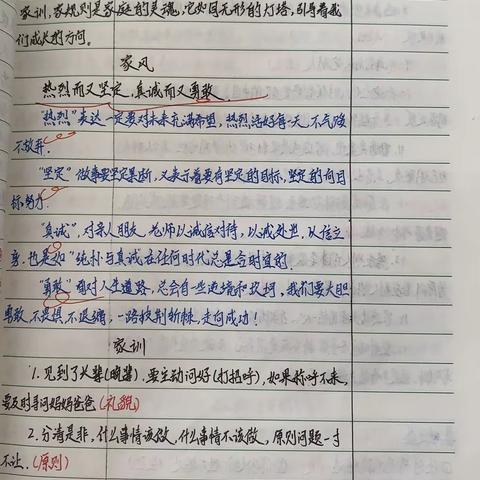 家训,家规则是家庭的灵魂,它如同无形的灯塔,引导着我
们成长的方向。
家风
热烈而又坚定,真诚而又勇敢.
"热烈"表达一定要对未来充满希望,热烈活好每一天,不气馁
不放弃.
"坚定"做事要坚定果断,又表示着要有坚定的目标,坚定的向目
标努力.
"真诚",对亲人朋友,老师以诚信对待,以诚处世,以信立
身,也是如"纯朴与真诚在任何时代总是合时宜的.
"勇敢"面对人生道路,总会有一些逆境和坎坷,我们要大胆
勇敢,不畏惧,不退缩,一路披荆斩棘,走向成功!
家训
1.见到了长辈(晚辈).要主动问好(打招呼),如果称呼不来,
要及时寻问妈妈爸爸(礼貌)
2.分清是非,什么事情该做,什么事情不该做,原则问题一寸
不让.(原则)